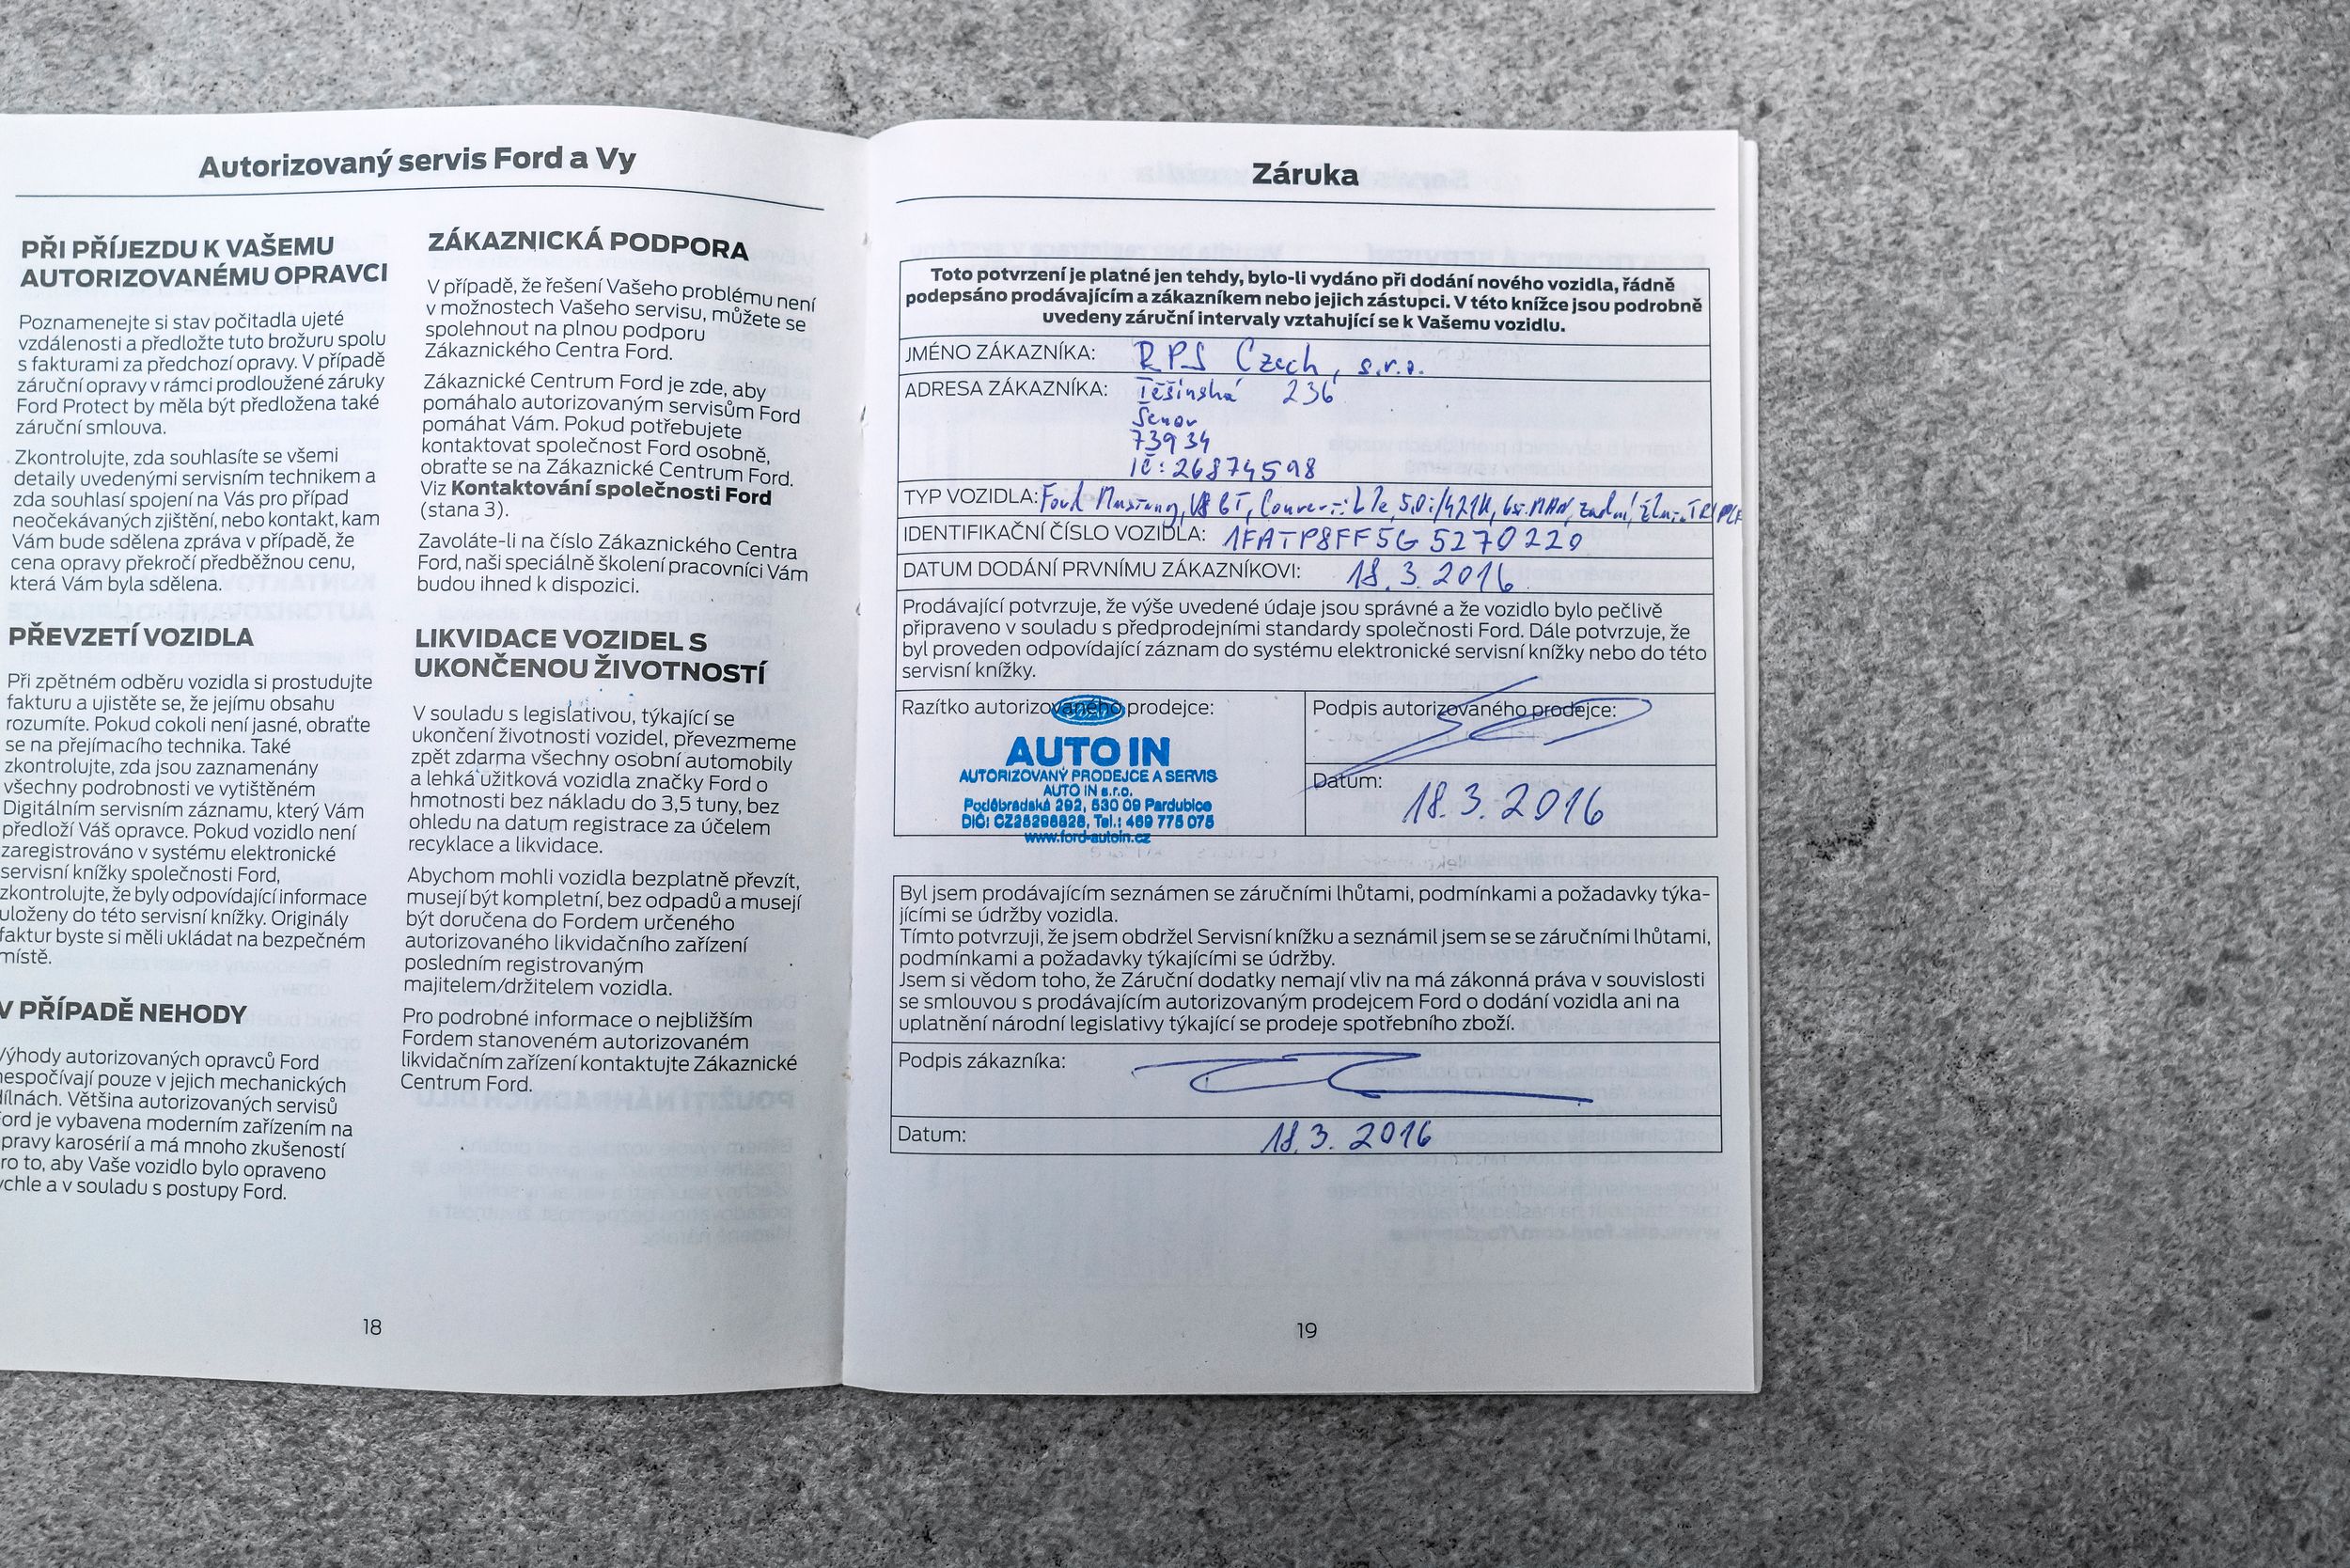 Autorizovaný servis Ford a Vy
PŘI PŘÍJEZDU K VAŠEMU
AUTORIZOVANÉMU OPRAVCI
Poznamenejte si stav počitadla ujeté
vzdálenosti a předložte tuto brožuru spolu
s fakturami za předchozí opravy. V případě
záruční opravy v rámci prodloužené záruky
Ford Protect by měla být předložena také
záruční smlouva.
Zkontrolujte, zda souhlasíte se všemi
detaily uvedenými servisním technikem a
zda souhlasí spojení na Vás pro případ
neočekávaných zjištění, nebo kontakt, kam
Vám bude sdělena zpráva v případě, že
cena opravy překročí předběžnou cenu,
která Vám byla sdělena.
PŘEVZETÍ VOZIDLA
Při zpětném odběru vozidla si prostudujte
fakturu a ujistěte se, že jejímu obsahu
rozumíte. Pokud cokoli není jasné, obraťte
se na přejímacího technika. Také
zkontrolujte, zda jsou zaznamenány
všechny podrobnosti ve vytištěném
Digitálním servisním záznamu, který Vám
předloží Váš opravce. Pokud vozidlo není
zaregistrováno v systému elektronické
servisní knížky společnosti Ford,
zkontrolujte, že byly odpovídající informace
uloženy do této servisní knížky. Originály
faktur byste si měli ukládat na bezpečném
místě.
V PŘÍPADĚ NEHODY
Výhody autorizovaných opravců Ford
nespočívají pouze v jejich mechanických
dílnách. Většina autorizovaných servisů
Ford je vybavena moderním zařízením na
pravy karosérií a má mnoho zkušeností
ro to, aby Vaše vozidlo bylo opraveno
ychle a v souladu s postupy Ford.
ZÁKAZNICKÁ PODPORA
V případě, že řešení Vašeho problému není
v možnostech Vašeho servisu, můžete se
spolehnout na plnou podporu
Zákaznického Centra Ford.
Zákaznické Centrum Ford je zde, aby
pomáhalo autorizovaným servisům Ford
pomáhat Vám. Pokud potřebujete
kontaktovat společnost Ford osobně,
obraťte se na Zákaznické Centrum Ford.
Viz Kontaktování společnosti Ford
(stana 3).
Zavoláte-li na číslo Zákaznického Centra
Ford, naši speciálně školení pracovníci Vám
budou ihned k dispozici.
LIKVIDACE VOZIDEL S
UKONČENOU ŽIVOTNOSTÍ
V souladu s legislativou, týkající se
ukončení životnosti vozidel, převezmeme
zpět zdarma všechny osobní automobily
a lehká užitková vozidla značky Ford o
hmotnosti bez nákladu do 3,5 tuny, bez
ohledu na datum registrace za účelem
recyklace a likvidace.
Abychom mohli vozidla bezplatně převzít,
musejí být kompletní, bez odpadů a musejí
být doručena do Fordem určeného
autorizovaného likvidačního zařízení
posledním registrovaným
majitelem/držitelem vozidla.
Pro podrobné informace o nejbližším
Fordem stanoveném autorizovaném
likvidačním zařízení kontaktujte Zákaznické
Centrum Ford.
18
Záruka
Toto potvrzení je platné jen tehdy, bylo-li vydáno při dodání nového vozidla, řádně
podepsáno prodávajícím a zákazníkem nebo jejich zástupci. V této knížce jsou podrobně
uvedeny záruční intervaly vztahující se k Vašemu vozidlu.
JMÉNO ZÁKAZNÍKA: RPS Czech, s.r.o.
ADRESA ZÁKAZNÍKA: Těšínská 236
Šenov
739 34
IČ: 26874598
TYP VOZIDLA: Ford Mustang, V8 GT, Convertible, 5,0i/421k, 6st. MAN, zadní, TRIPLE
IDENTIFIKAČNÍ ČÍSLO VOZIDLA: 1FATP8FF5G5270220
DATUM DODÁNÍ PRVNÍMU ZÁKAZNÍKOVI: 18. 3. 2016
Prodávající potvrzuje, že výše uvedené údaje jsou správné a že vozidlo bylo pečlivě
připraveno v souladu s předprodejními standardy společnosti Ford. Dále potvrzuje, že
byl proveden odpovídající záznam do systému elektronické servisní knížky nebo do této
servisní knížky.
Razítko autorizovaného prodejce:
AUTO IN
AUTORIZOVANÝ PRODEJCE A SERVIS
AUTO IN s.r.o.
Poděbradská 292, 530 09 Pardubice
DIČ: CZ25298828, Tel.: 469 775 075
www.ford-autoin.cz
Podpis autorizovaného prodejce:
Datum:
18. 3. 2016
Byl jsem prodávajícím seznámen se záručními lhůtami, podmínkami a požadavky týka-
jícími se údržby vozidla.
Tímto potvrzuji, že jsem obdržel Servisní knížku a seznámil jsem se se záručními lhůtami,
podmínkami a požadavky týkajícími se údržby.
Jsem si vědom toho, že Záruční dodatky nemají vliv na má zákonná práva v souvislosti
se smlouvou s prodávajícím autorizovaným prodejcem Ford o dodání vozidla ani na
uplatnění národní legislativy týkající se prodeje spotřebního zboží.
Podpis zákazníka:
Datum: 18. 3. 2016
19